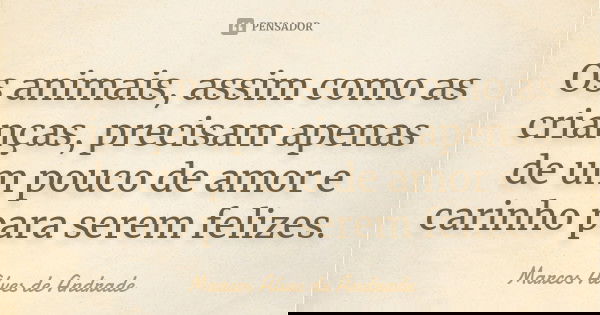 PENSADOR
Os animais, assim como as
crianças, precisam apenas
de um pouco de amor e
carinho para serem felizes.
Marcos Alves de Andrade